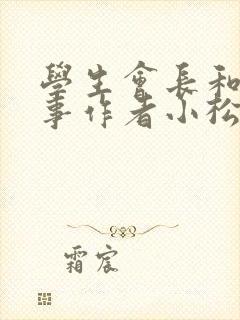 學生會長和
事作者小松
霜宸